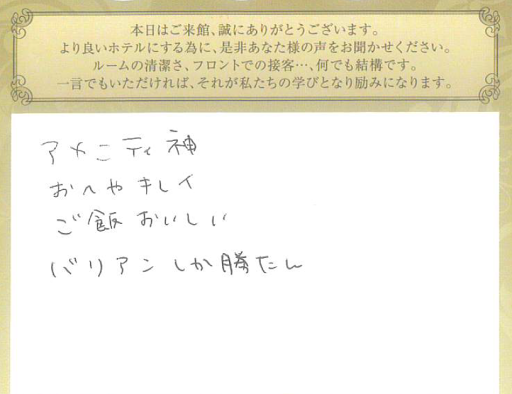 本日はご来館、誠にありがとうございます。
より良いホテルにする為に、是非あなた様の声をお聞かせください。
ルームの清潔さ、フロントでの接客…、何でも結構です。
一言でもいただければ、それが私たちの学びとなり励みになります。
アメニティ神
おへやキレイ
ご飯おいしい
バリアンしか勝たん